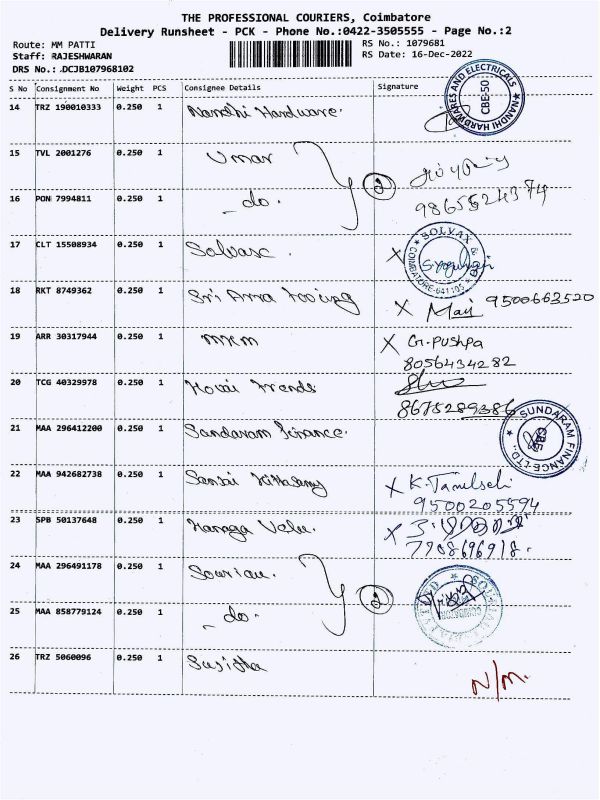 THE PROFESSIONAL COURIERS, Coimbatore
Delivery Runsheet - PCK - Phone No.:0422-3505555 - Page No.:2
Route: MM PATTI RS No.: 1079681
Staff: RAJESHWARAN RS Date: 16-Dec-2022
DRS No.: DCJB107968102
S No Consignment No Weight PCS Consignee Details Signature
14 TRZ 190010333 0.250 1 Nandhi Hardware.
NANDHI HARDWARES AND ELECTRICALS
CBE-50
15 TVL 2001276 0.250 1 Umar
2
16 PON 7994811 0.250 1 - do. 9865524374
17 CLT 15508934 0.250 1 X
COIMBATORE-641105
18 RKT 8749362 0.250 1 Sri X Mari 9500663520
19 ARR 30317944 0.250 1 mkm X G.pushpa
8056434282
20 TCG 40329978 0.250 1 Kovai Trends
8675289386
21 MAA 296412200 0.250 1 Sundaram Finance.
SUNDARAM FINANCE LTD.
22 MAA 942682738 0.250 1 X K.Tamilseli
9500205594
23 SPB 50137648 0.250 1 Kanaga Velu. X
7708696918.
24 MAA 296491178 0.250 1
2
25 MAA 858779124 0.250 1 - do.
26 TRZ 5060096 0.250 1 Susitha N/M.